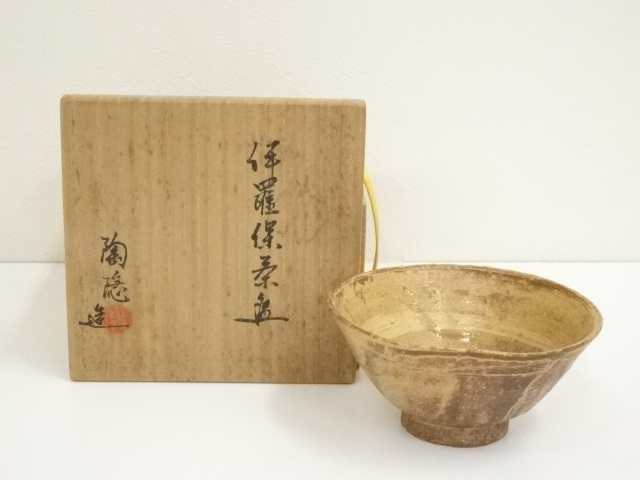 伊羅保茶盌
陶隠造